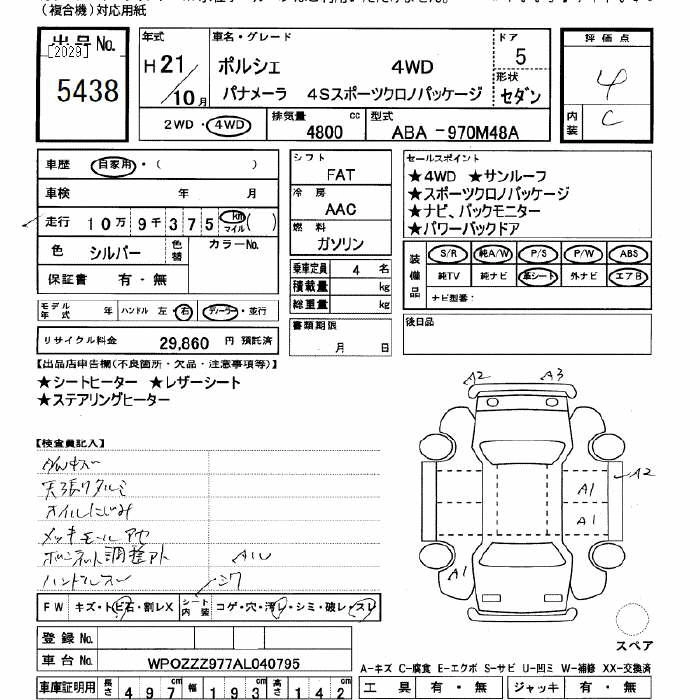 (複合機)対応用紙
出品No.
[2029]
5438
年式
H21/10月
車名・グレード
ポルシェ 4WD
パナメーラ 4Sスポーツクロノパッケージ
ドア
5
形状
セダン
評価点
4
内装
C
2WD・4WD
排気量
4800 cc
型式
ABA -970M48A
車歴 自家用・( )
車検 年 月
走行 10万9千375 km マイル ( )
色 シルバー 色替 カラーNo.
保証書 有・無
シフト
FAT
冷房
AAC
燃料
ガソリン
乗車定員 4 名
積載量 kg
総重量 kg
書類期限
月 日
セールスポイント
★4WD ★サンルーフ
★スポーツクロノパッケージ
★ナビ、バックモニター
★パワーバックドア
装備品
S/R 純A/W P/S P/W ABS
純TV 純ナビ 革シート 外ナビ エアB
ナビ型番:
後日品
モデル年式 年 ハンドル 左・右 ディーラー・並行
リサイクル料金 29,860 円 預託済
【出品店申告欄(不良箇所・欠品・注意事項等)】
★シートヒーター ★レザーシート
★ステアリングヒーター
【検査員記入】
天張りタルミ
オイルにじみ
メッキモール
ボンネット調整
ハンドルスレ
FW キズ・トビ石・割レX シート内装 コゲ・穴・汚レ・シミ・破レ・スレ
登録No.
車台No. WPOZZZ977AL040795
車庫証明用 長さ 497 cm 幅 193 cm 高さ 142 cm
A2 A3
A2
A1
A1
A1
スペア
A-キズ C-腐食 E-エクボ S-サビ U-凹ミ W-補修 XX-交換済
工具 有・無 ジャッキ 有・無